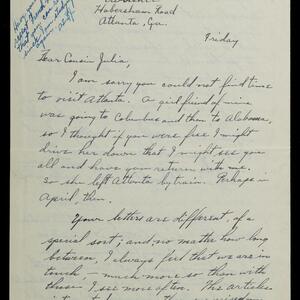 Habersham Road
Atlanta, Ga.
Friday.
Dear Cousin Julia,
I am sorry you could not find time
to visit Atlanta. A girl friend of mine
was going to Columbus and then to Alabama,
so I thought if you were free I might
drive her down, that I might see you
all and have you return with me.
So she left Atlanta by train. Perhaps in
April, then.
Your letters are different, of a
special sort; and, no matter how long
between, I always feel that we are in
touch — much more so than with
those I see more often. The articles